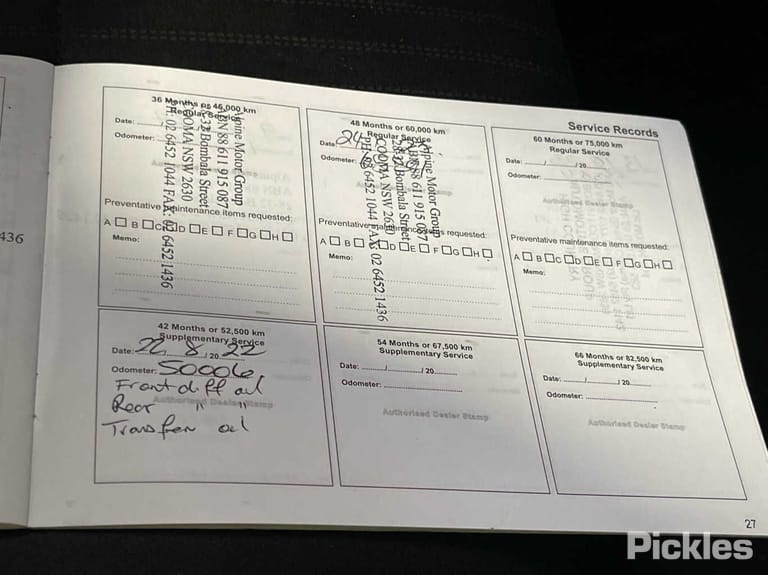 Service Records
36 Months or 45,000 km
Regular Service
Date:
Odometer:
Alpine Motor Group
ABN 88 611 915 087
2833 Bombala Street
COOMA NSW 2630
PH: 02 6452 1044 FAX: 02 6452 1436
Preventative maintenance items requested:
A B C D E F G H
Memo:
48 Months or 60,000 km
Regular Service
Date: 24
Odometer:
Alpine Motor Group
ABN 88 611 915 087
Bombala Street
COOMA NSW 2630
PH: 02 6452 1044 FAX: 02 6452 1436
Preventative maintenance items requested:
A B C D E F G H
Memo:
60 Months or 75,000 km
Regular Service
Date: ....../....../20......
Odometer:
Authorised Dealer Stamp
Preventative maintenance items requested:
A B C D E F G H
Memo:
42 Months or 52,500 km
Supplementary Service
Date: 22 / 8 / 20 22
Odometer: 50006
Front diff oil
Rear " "
Transfer oil
Authorised Dealer Stamp
54 Months or 67,500 km
Supplementary Service
Date: ....../....../20......
Odometer:
Authorised Dealer Stamp
66 Months or 82,500 km
Supplementary Service
Date: ....../....../20......
Odometer:
Authorised Dealer Stamp
27
436
Pickles